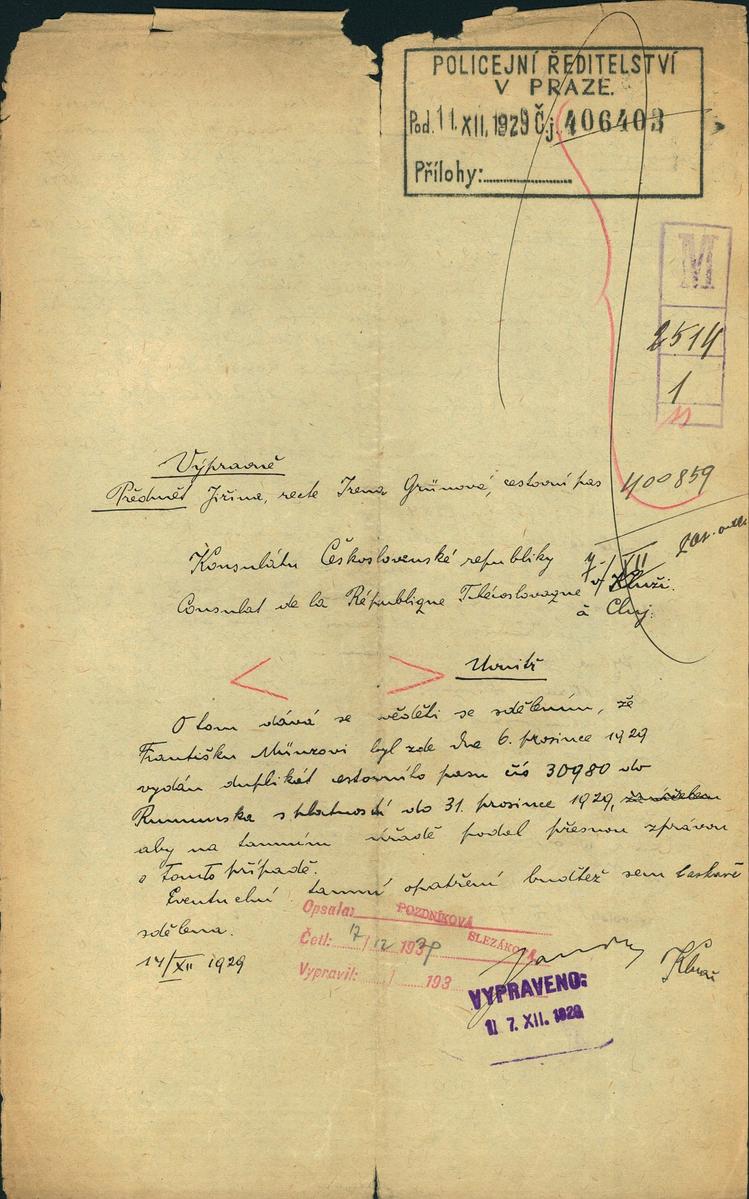 POLICEJNÍ ŘEDITELSTVÍ
V PRAZE.
Pod. 11. XII. 1929 Čj. 406403
Přílohy:
M
2514
1
Výpravně
Předmět Jiřina, recte Irena Grünová, cestovní pas 400859
7/XII
Konsulátu Československé republiky
v Kluži.
Consulat de la République Tchécoslovaque
à Cluj.
Uvnitř
O tom dává se věděti se sdělením, že
Františku Münzovi byl zde dne 6. prosince 1929
vydán duplikát cestovního pasu čís 30980 do
Rumunska s platností do 31. prosince 1929,
aby na tamním úřadě podal přesnou zprávu
o tomto případě.
Eventuelní tamní opatření buďtež sem laskavě
sdělena.
14/XII 1929
Opsala: POZDNÍKOVÁ
Četl: 17/12 193 SLEZÁKOVÁ
Vypravil: / 193
VYPRAVENO:
17. XII. 1929